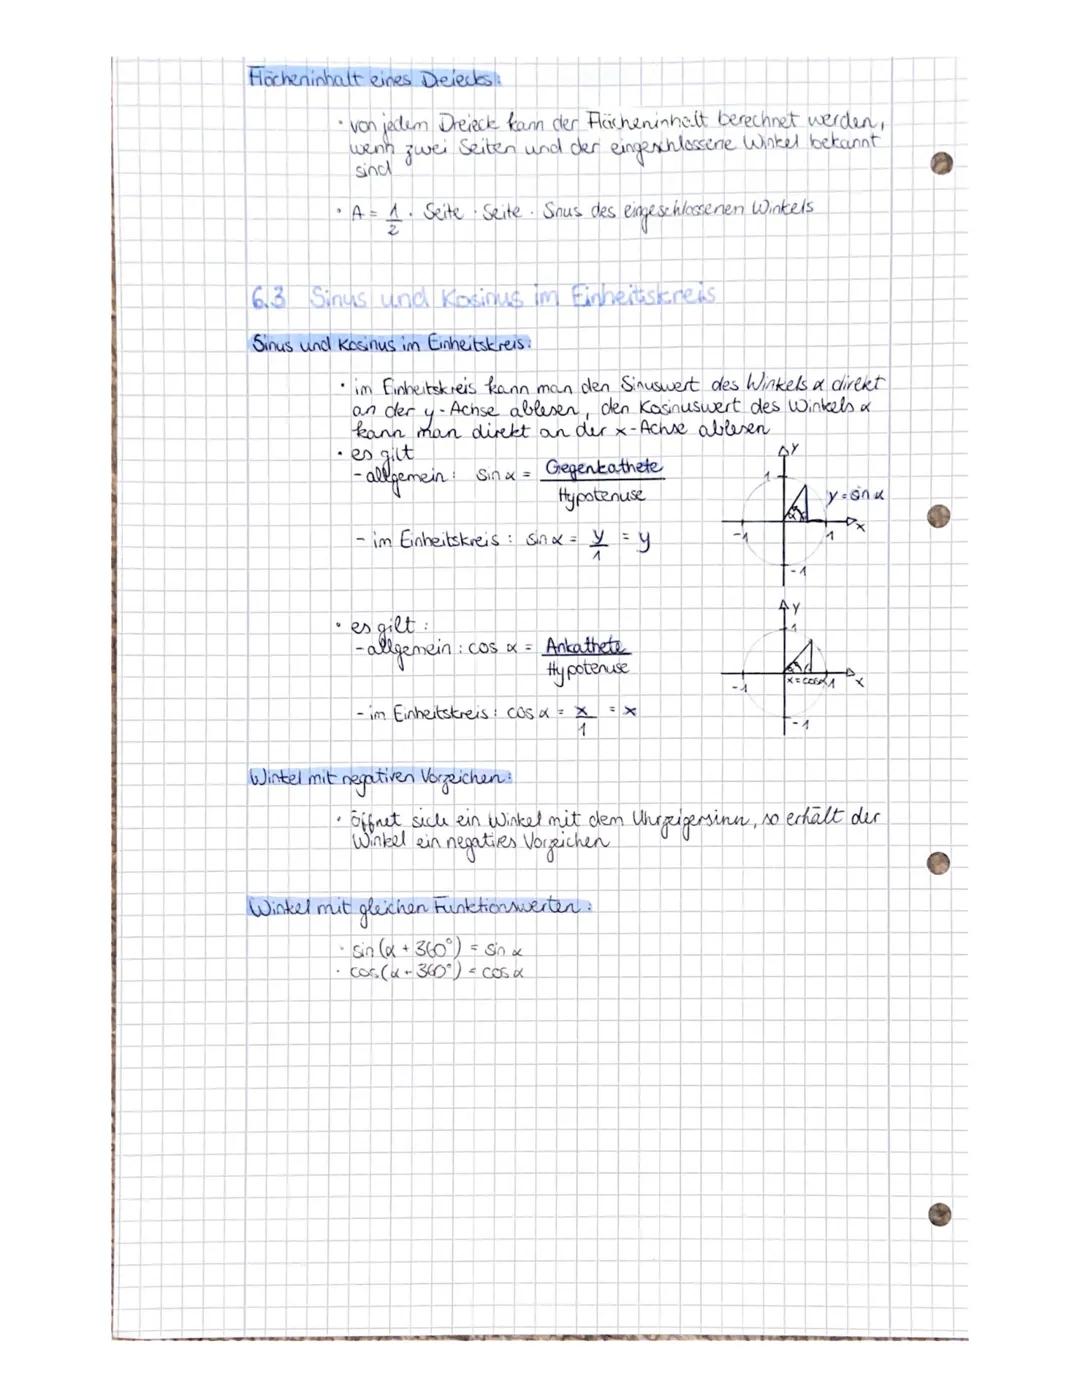 Flächeninhalt eines Dreiecks:
· von jedem Dreieck kann der Flächeninhalt berechnet werden,
wenn zwei Seiten und der eingeschlossene Winkel bekannt
sind
· A = 1/2 · Seite · Seite · Snus des eingeschlossenen Winkels
6.3 Sinus und Kosinus im Einheitskreis
Sinus und Kosinus im Einheitskreis:
· im Einheitskreis kann man den Sinuswert des Winkels α direkt
an der y-Achse ablesen, den Kosinuswert des Winkels α
kann man direkt an der x-Achse ablesen
· es gilt
- allgemein: sin α = Gegenkathete / Hypotenuse
- im Einheitskreis: sin α = y/1 = y
y
1
y = sin α
α
-1
1
x
-1
· es gilt:
- allgemein: cos α = Ankathete / Hypotenuse
- im Einheitskreis: cos α = x/1 = x
y
1
α
-1
x = cos α
1
x
-1
Winkel mit negativen Vorzeichen:
· öffnet sich ein Winkel mit dem Uhrzeigersinn, so erhält der
Winkel ein negatives Vorzeichen
Winkel mit gleichen Funktionswerten:
· sin(α + 360°) = sin α
· cos(α + 360°) = cos α